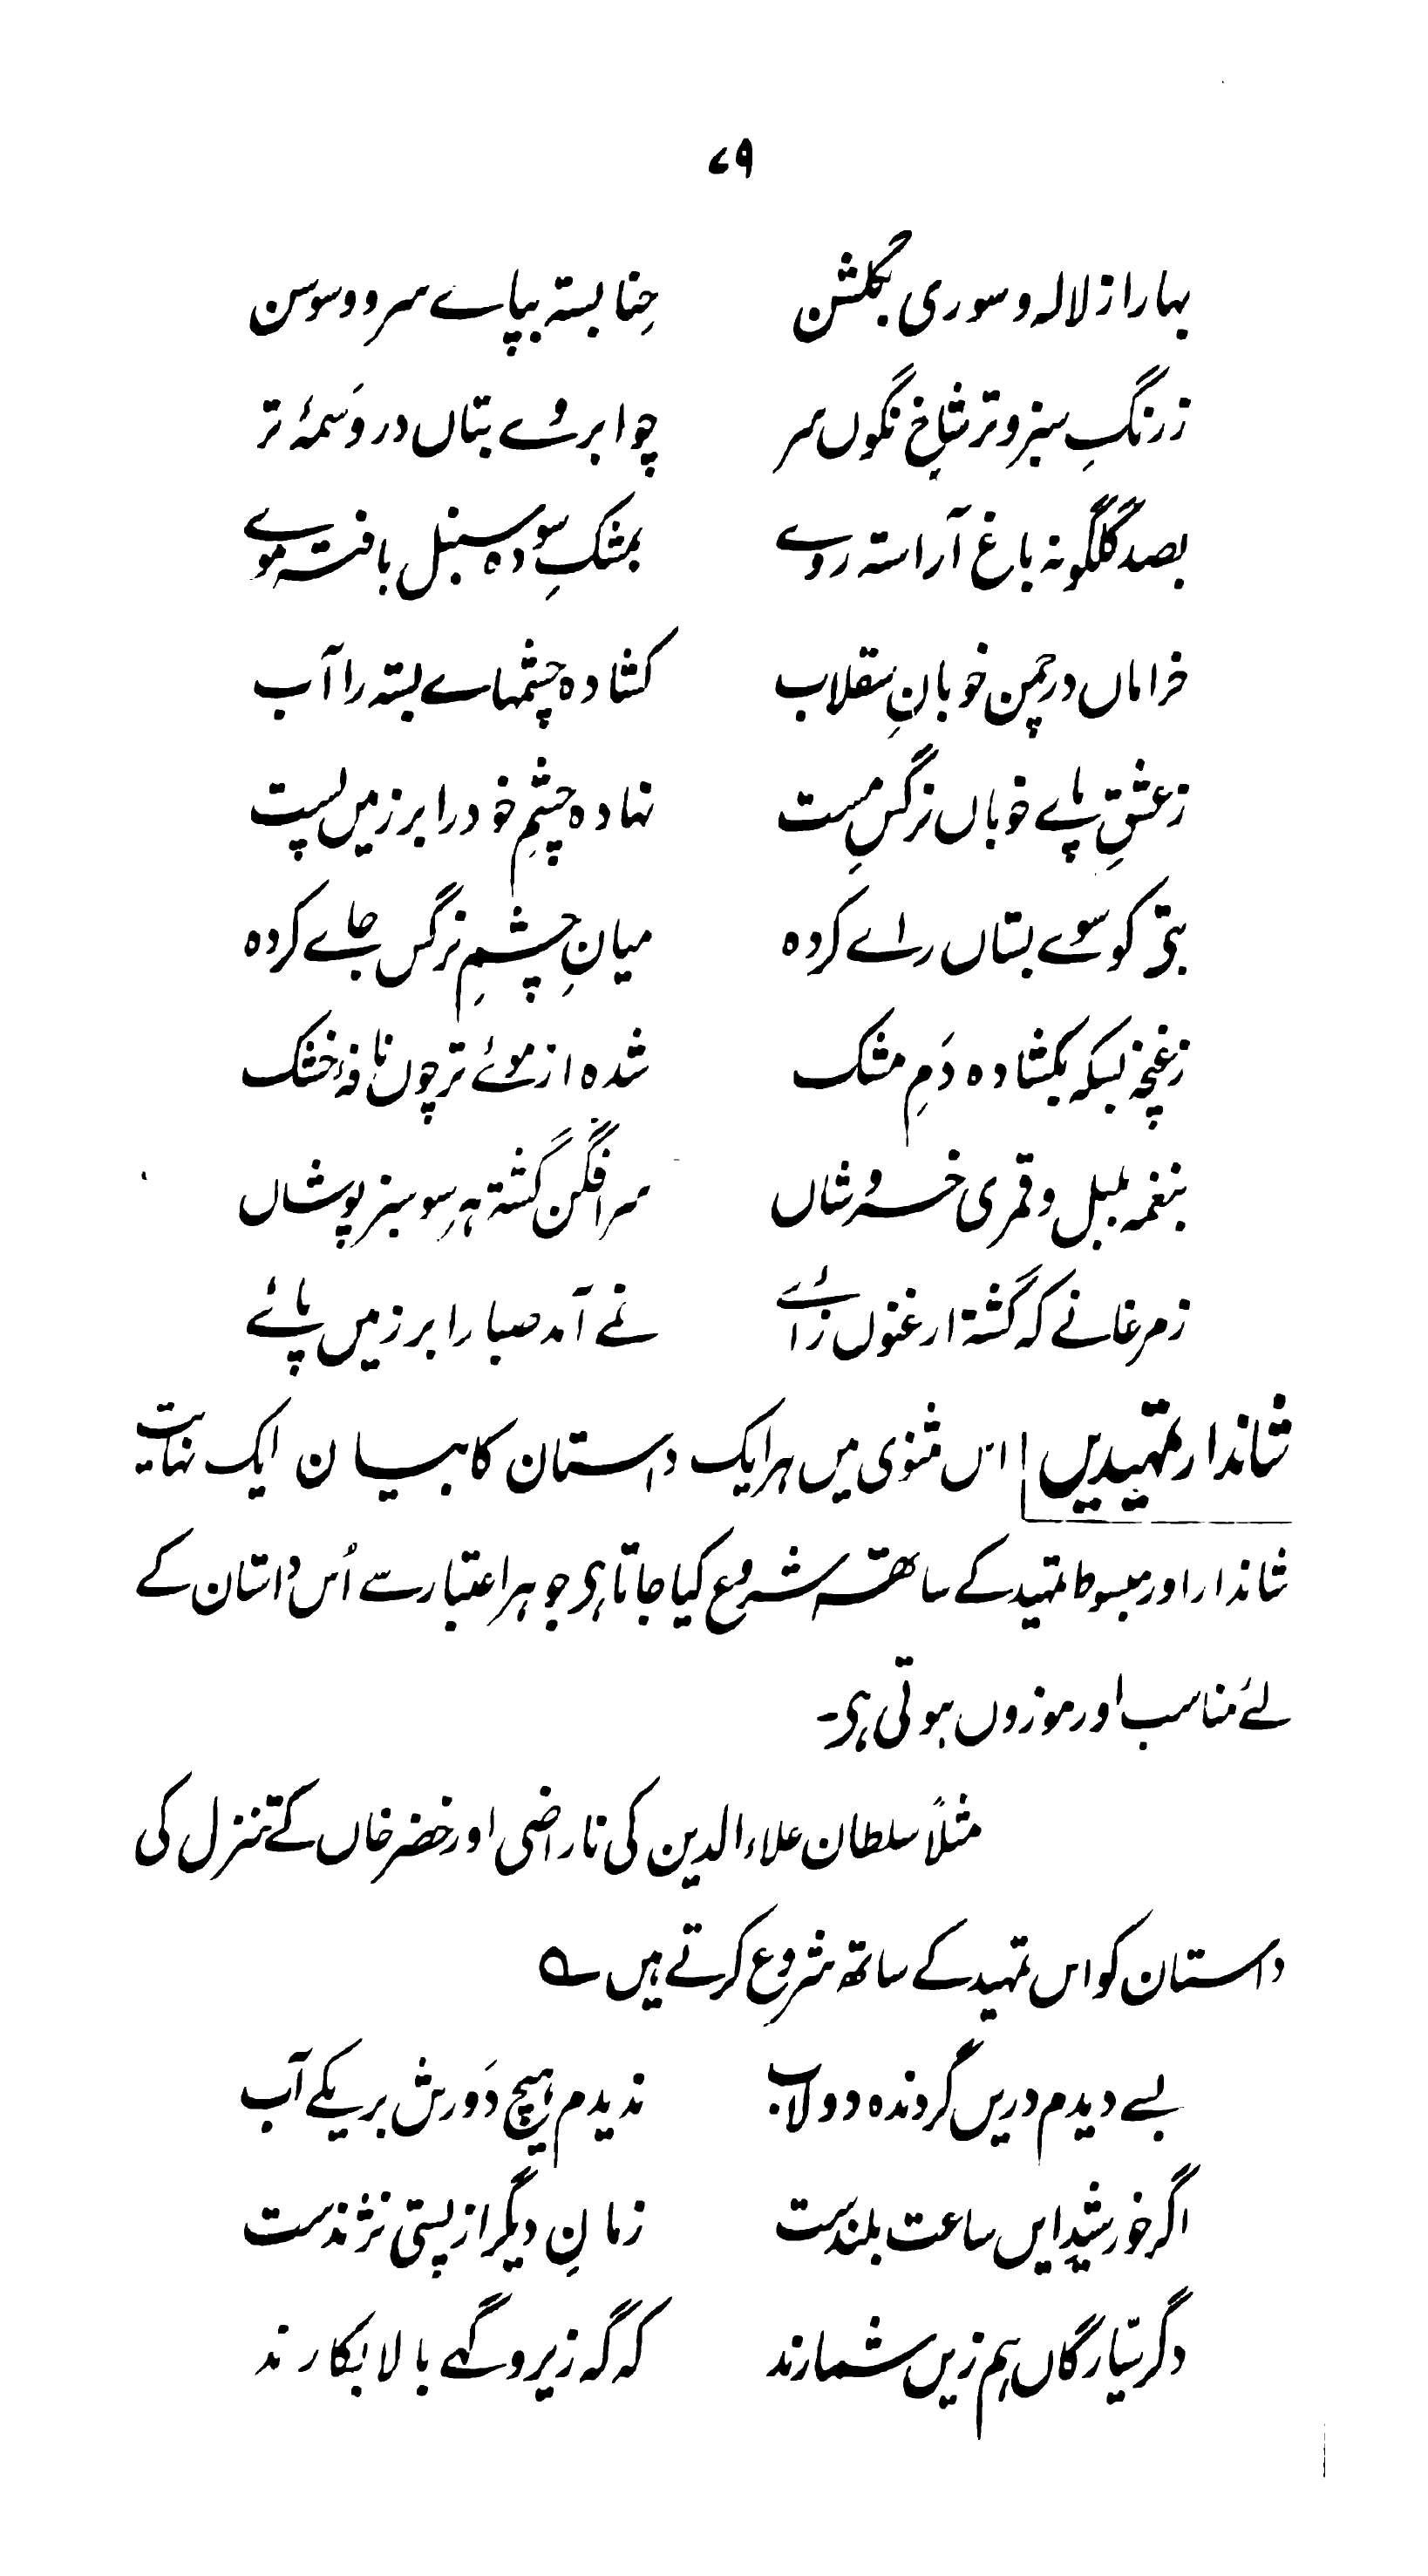 ۷۹
بہار از لالہ و سوری بگلشن حِنا بستہ بپاے سرو و سوسن
ز رنگِ سبز و تر شاخِ نگوں سر چو ابروُے بتاں در وَسمۂ تر
بصد گلگونہ باغ آراستہ روے بمشکِ سودہ سنبل بافتہ موے
خراماں در چمن خوبانِ سقلاب کشادہ چشمہاے بستہ را آب
ز عشقِ پاے خوباں نرگسِ مست نہادہ چشمِ خود را بر زمیں پست
بتی کو سوے بستاں راے کردہ میانِ چشمِ نرگس جاے کردہ
ز غنچہ بسکہ بکشادہ دَمِ مشک شدہ از موئے تر چوں نافۂ خشک
بنغمہ بلبل و قمری خروُشاں سرافگن گَشتہ ہر سو سبز پوشاں
ز مرغانے کہ گَشتہ ارغنوں زاے نمے آمد صبا را بر زمیں پائے
شاندار تمہیدیں | اس مثنوی میں ہر ایک داستان کا بیان ایک نہایت
شاندار اور مبسوط تمہید کے ساتھ شروع کیا جاتا ہی جو ہر اعتبار سے اُس داستان کے
لئے مناسب اور موزوں ہوتی ہی۔
مثلاً سلطان علاء الدین کی ناراضی اور خضر خاں کے تنزل کی
داستان کو اس تمہید کے ساتھ شروع کرتے ہیں ؎
بسے دیدم دریں گردندہ دولاب ندیدم ہیچ دَورش بر یکے آب
اگر خورشیدِ ایں ساعت بلندست زمانِ دیگر از پستی نژندست
دگر سیّارگاں ہم زیں شمارند کہ گہ زیر و گہے بالا بکارند